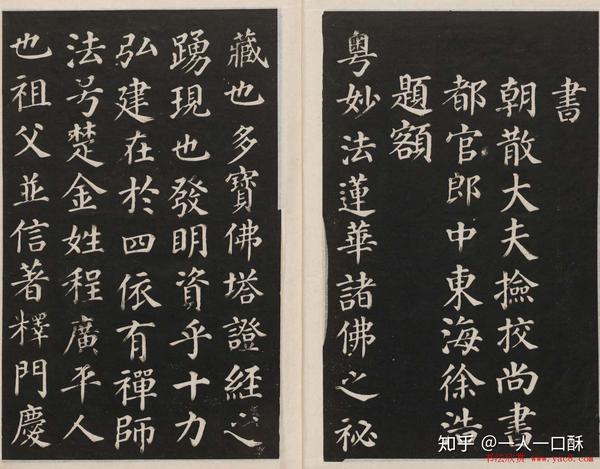 書
朝散大夫撿挍尚書
都官郎中東海徐浩
題額
粵妙法蓮華諸佛之祕
藏也多寶佛塔證經之
踴現也發明資乎十力
弘建在於四依有禪師
法号楚金姓程廣平人
也祖父並信著釋門慶
知乎 @一人一口酥
书法欣赏 www.yac8.com